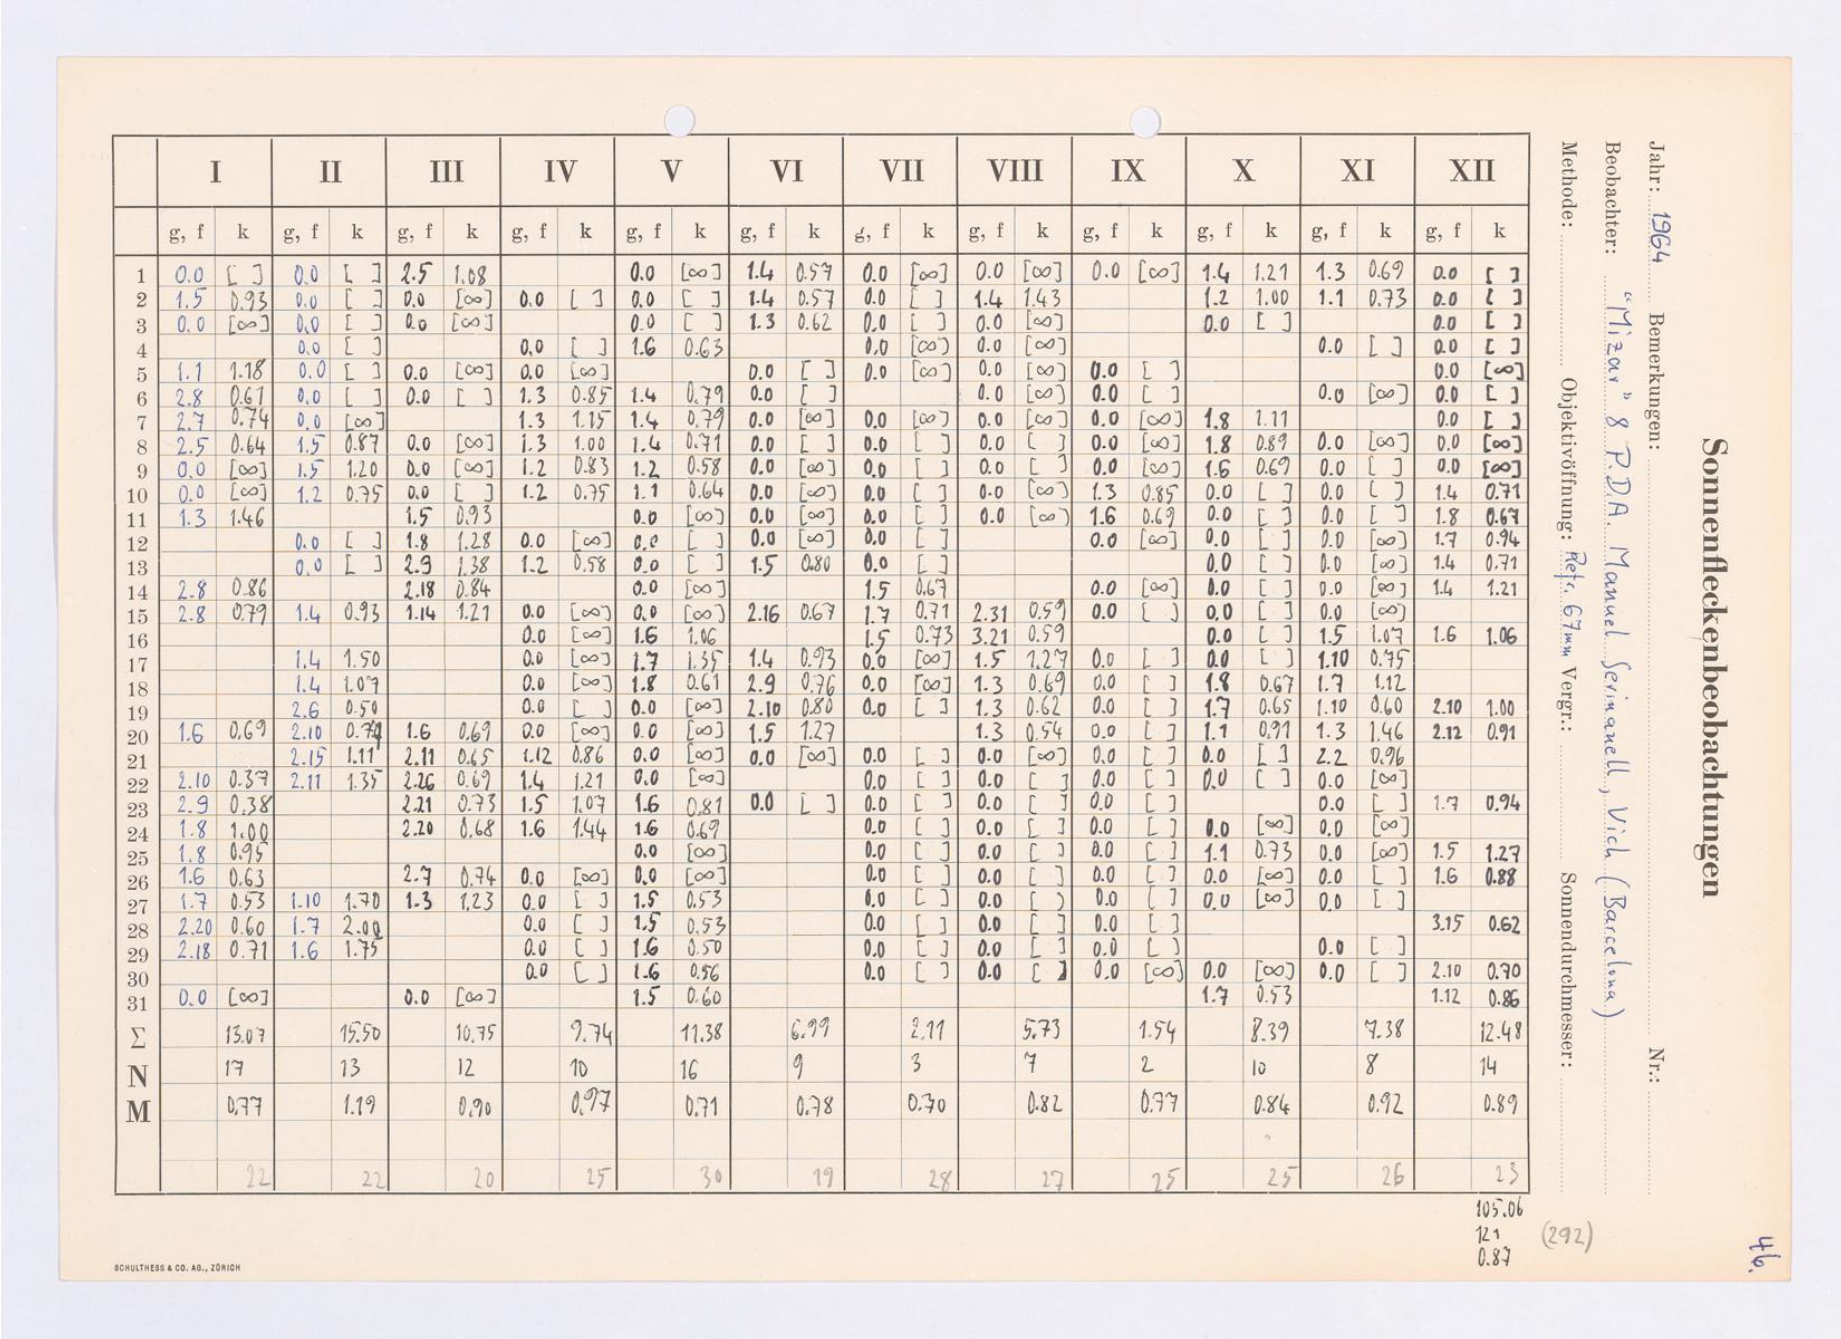 Sonnenfleckenbeobachtungen
Jahr: 1964 Bemerkungen: Nr.:
Beobachter: "Mizar" 8 P.D.A. Manuel Serinanell, Vich (Barcelona)
Methode: Objektivöffnung: Refr. 67mm Vergr.: Sonnendurchmesser:
I II III IV V VI VII VIII IX X XI XII
g, f k g, f k g, f k g, f k g, f k g, f k g, f k g, f k g, f k g, f k g, f k g, f k
1 0.0 [ ] 0.0 [ ] 2.5 1.08 0.0 [∞] 1.4 0.57 0.0 [∞] 0.0 [∞] 0.0 [∞] 1.4 1.21 1.3 0.69 0.0 [ ]
2 1.5 0.93 0.0 [ ] 0.0 [∞] 0.0 [ ] 0.0 [ ] 1.4 0.57 0.0 [ ] 1.4 1.43 1.2 1.00 1.1 0.73 0.0 [ ]
3 0.0 [∞] 0.0 [ ] 0.0 [∞] 0.0 [ ] 1.3 0.62 0.0 [ ] 0.0 [∞] 0.0 [ ] 0.0 [ ]
4 0.0 [ ] 0.0 [ ] 1.6 0.63 0.0 [∞] 0.0 [∞] 0.0 [ ] 0.0 [ ]
5 1.1 1.18 0.0 [ ] 0.0 [∞] 0.0 [∞] 0.0 [ ] 0.0 [∞] 0.0 [∞] 0.0 [ ] 0.0 [∞]
6 2.8 0.61 0.0 [ ] 0.0 [ ] 1.3 0.85 1.4 0.79 0.0 [ ] 0.0 [∞] 0.0 [ ] 0.0 [∞] 0.0 [ ]
7 2.7 0.74 0.0 [∞] 1.3 1.15 1.4 0.79 0.0 [∞] 0.0 [∞] 0.0 [∞] 0.0 [∞] 1.8 1.11 0.0 [ ]
8 2.5 0.64 1.5 0.87 0.0 [∞] 1.3 1.00 1.4 0.71 0.0 [ ] 0.0 [ ] 0.0 [ ] 0.0 [∞] 1.8 0.89 0.0 [∞] 0.0 [∞]
9 0.0 [∞] 1.5 1.20 0.0 [∞] 1.2 0.83 1.2 0.58 0.0 [∞] 0.0 [ ] 0.0 [ ] 0.0 [∞] 1.6 0.69 0.0 [ ] 0.0 [∞]
10 0.0 [∞] 1.2 0.75 0.0 [ ] 1.2 0.75 1.1 0.64 0.0 [∞] 0.0 [ ] 0.0 [∞] 1.3 0.85 0.0 [ ] 0.0 [ ] 1.4 0.71
11 1.3 1.46 1.5 0.93 0.0 [∞] 0.0 [∞] 0.0 [ ] 0.0 [∞] 1.6 0.69 0.0 [ ] 0.0 [ ] 1.8 0.67
12 0.0 [ ] 1.8 1.28 0.0 [∞] 0.0 [ ] 0.0 [∞] 0.0 [ ] 0.0 [∞] 0.0 [ ] 0.0 [∞] 1.7 0.94
13 0.0 [ ] 2.9 1.38 1.2 0.58 0.0 [ ] 1.5 0.80 0.0 [ ] 0.0 [ ] 0.0 [∞] 1.4 0.71
14 2.8 0.86 2.18 0.84 0.0 [∞] 1.5 0.67 0.0 [∞] 0.0 [ ] 0.0 [∞] 1.4 1.21
15 2.8 0.79 1.4 0.93 1.14 1.21 0.0 [∞] 0.0 [∞] 2.16 0.67 1.7 0.71 2.31 0.59 0.0 [ ] 0.0 [ ] 0.0 [∞]
16 0.0 [∞] 1.6 1.06 1.5 0.73 3.21 0.59 0.0 [ ] 1.5 1.07 1.6 1.06
17 1.4 1.50 0.0 [∞] 1.7 1.35 1.4 0.93 0.0 [∞] 1.5 1.27 0.0 [ ] 0.0 [ ] 1.10 0.75
18 1.4 1.07 0.0 [∞] 1.8 0.61 2.9 0.76 0.0 [∞] 1.3 0.69 0.0 [ ] 1.8 0.67 1.7 1.12
19 2.6 0.50 0.0 [ ] 0.0 [∞] 2.10 0.80 0.0 [ ] 1.3 0.62 0.0 [ ] 1.7 0.65 1.10 0.60 2.10 1.00
20 1.6 0.69 2.10 1.6 0.69 0.0 [∞] 0.0 [∞] 1.5 1.27 1.3 0.54 0.0 [ ] 1.1 0.91 1.3 1.46 2.12 0.91
21 2.15 1.11 2.11 0.65 1.12 0.86 0.0 [∞] 0.0 [∞] 0.0 [ ] 0.0 [∞] 0.0 [ ] 0.0 [ ] 2.2 0.96
22 2.10 0.37 2.11 1.35 2.26 0.69 1.4 1.21 0.0 [∞] 0.0 [ ] 0.0 [ ] 0.0 [ ] 0.0 [ ] 0.0 [∞]
23 2.9 0.38 2.21 0.73 1.5 1.07 1.6 0.81 0.0 [ ] 0.0 [ ] 0.0 [ ] 0.0 [ ] 0.0 [ ] 1.7 0.94
24 1.8 1.00 2.20 0.68 1.6 1.44 1.6 0.69 0.0 [ ] 0.0 [ ] 0.0 [ ] 0.0 [∞] 0.0 [∞]
25 1.8 0.95 0.0 [∞] 0.0 [ ] 0.0 [ ] 0.0 [ ] 1.1 0.73 0.0 [∞] 1.5 1.27
26 1.6 0.63 2.7 0.74 0.0 [∞] 0.0 [∞] 0.0 [ ] 0.0 [ ] 0.0 [ ] 0.0 [∞] 0.0 [ ] 1.6 0.88
27 1.7 0.53 1.10 1.70 1.3 1.23 0.0 [ ] 1.5 0.53 0.0 [ ] 0.0 [ ] 0.0 [ ] 0.0 [∞] 0.0 [ ]
28 2.20 0.60 1.7 2.00 0.0 [ ] 1.5 0.53 0.0 [ ] 0.0 [ ] 0.0 [ ] 3.15 0.62
29 2.18 0.71 1.6 1.75 0.0 [ ] 1.6 0.50 0.0 [ ] 0.0 [ ] 0.0 [ ] 0.0 [ ]
30 0.0 [ ] 1.6 0.56 0.0 [ ] 0.0 [ ] 0.0 [∞] 0.0 [∞] 0.0 [ ] 2.10 0.70
31 0.0 [∞] 0.0 [∞] 1.5 0.60 1.7 0.53 1.12 0.86
Σ 13.07 15.50 10.75 9.74 11.38 6.99 2.11 5.73 1.54 8.39 7.38 12.48
N 17 13 12 10 16 9 3 7 2 10 8 14
M 0.77 1.19 0.90 0.97 0.71 0.78 0.70 0.82 0.77 0.84 0.92 0.89
22 22 20 25 30 19 28 27 25 25 26 23
105.06
121 (292)
0.87
46.
SCHULTHESS & CO. AG., ZÜRICH